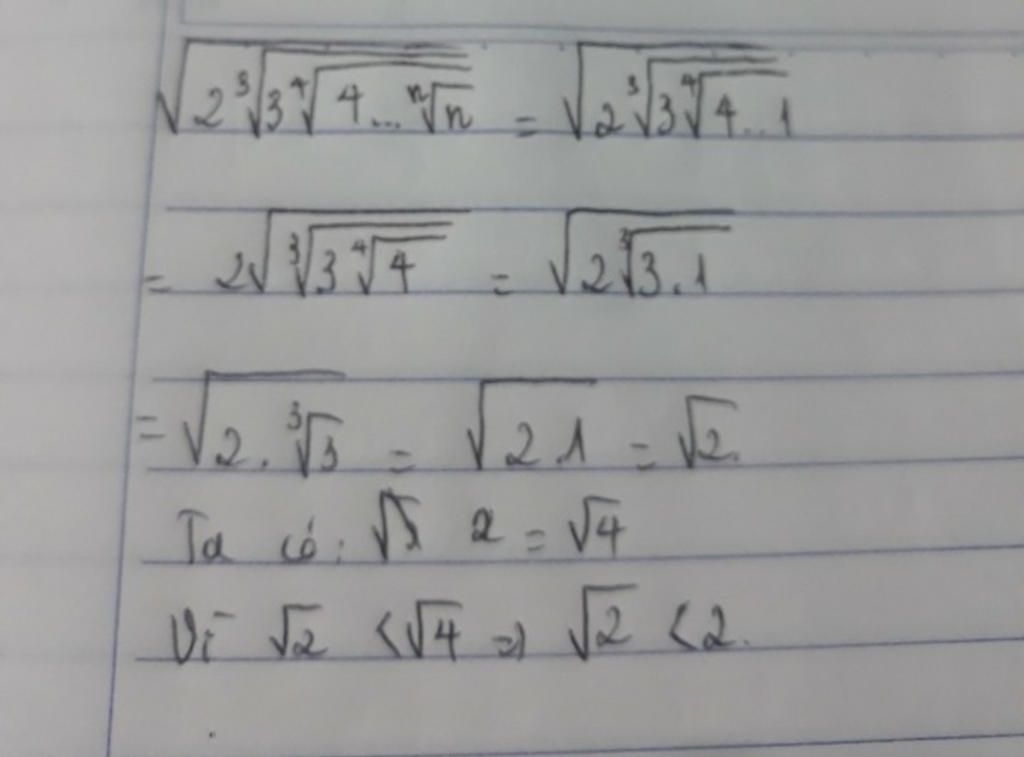 √(2∛(3∜(4...ⁿ√n))) = √(2∛(3∜(4..1)))
= 2√(∛(3∜4)) = √(2∛(3.1))
= √(2.∛3) = √(2.1) = √2.
Ta có: 2 = √4
Vì √2 < √4 => √2 < 2.